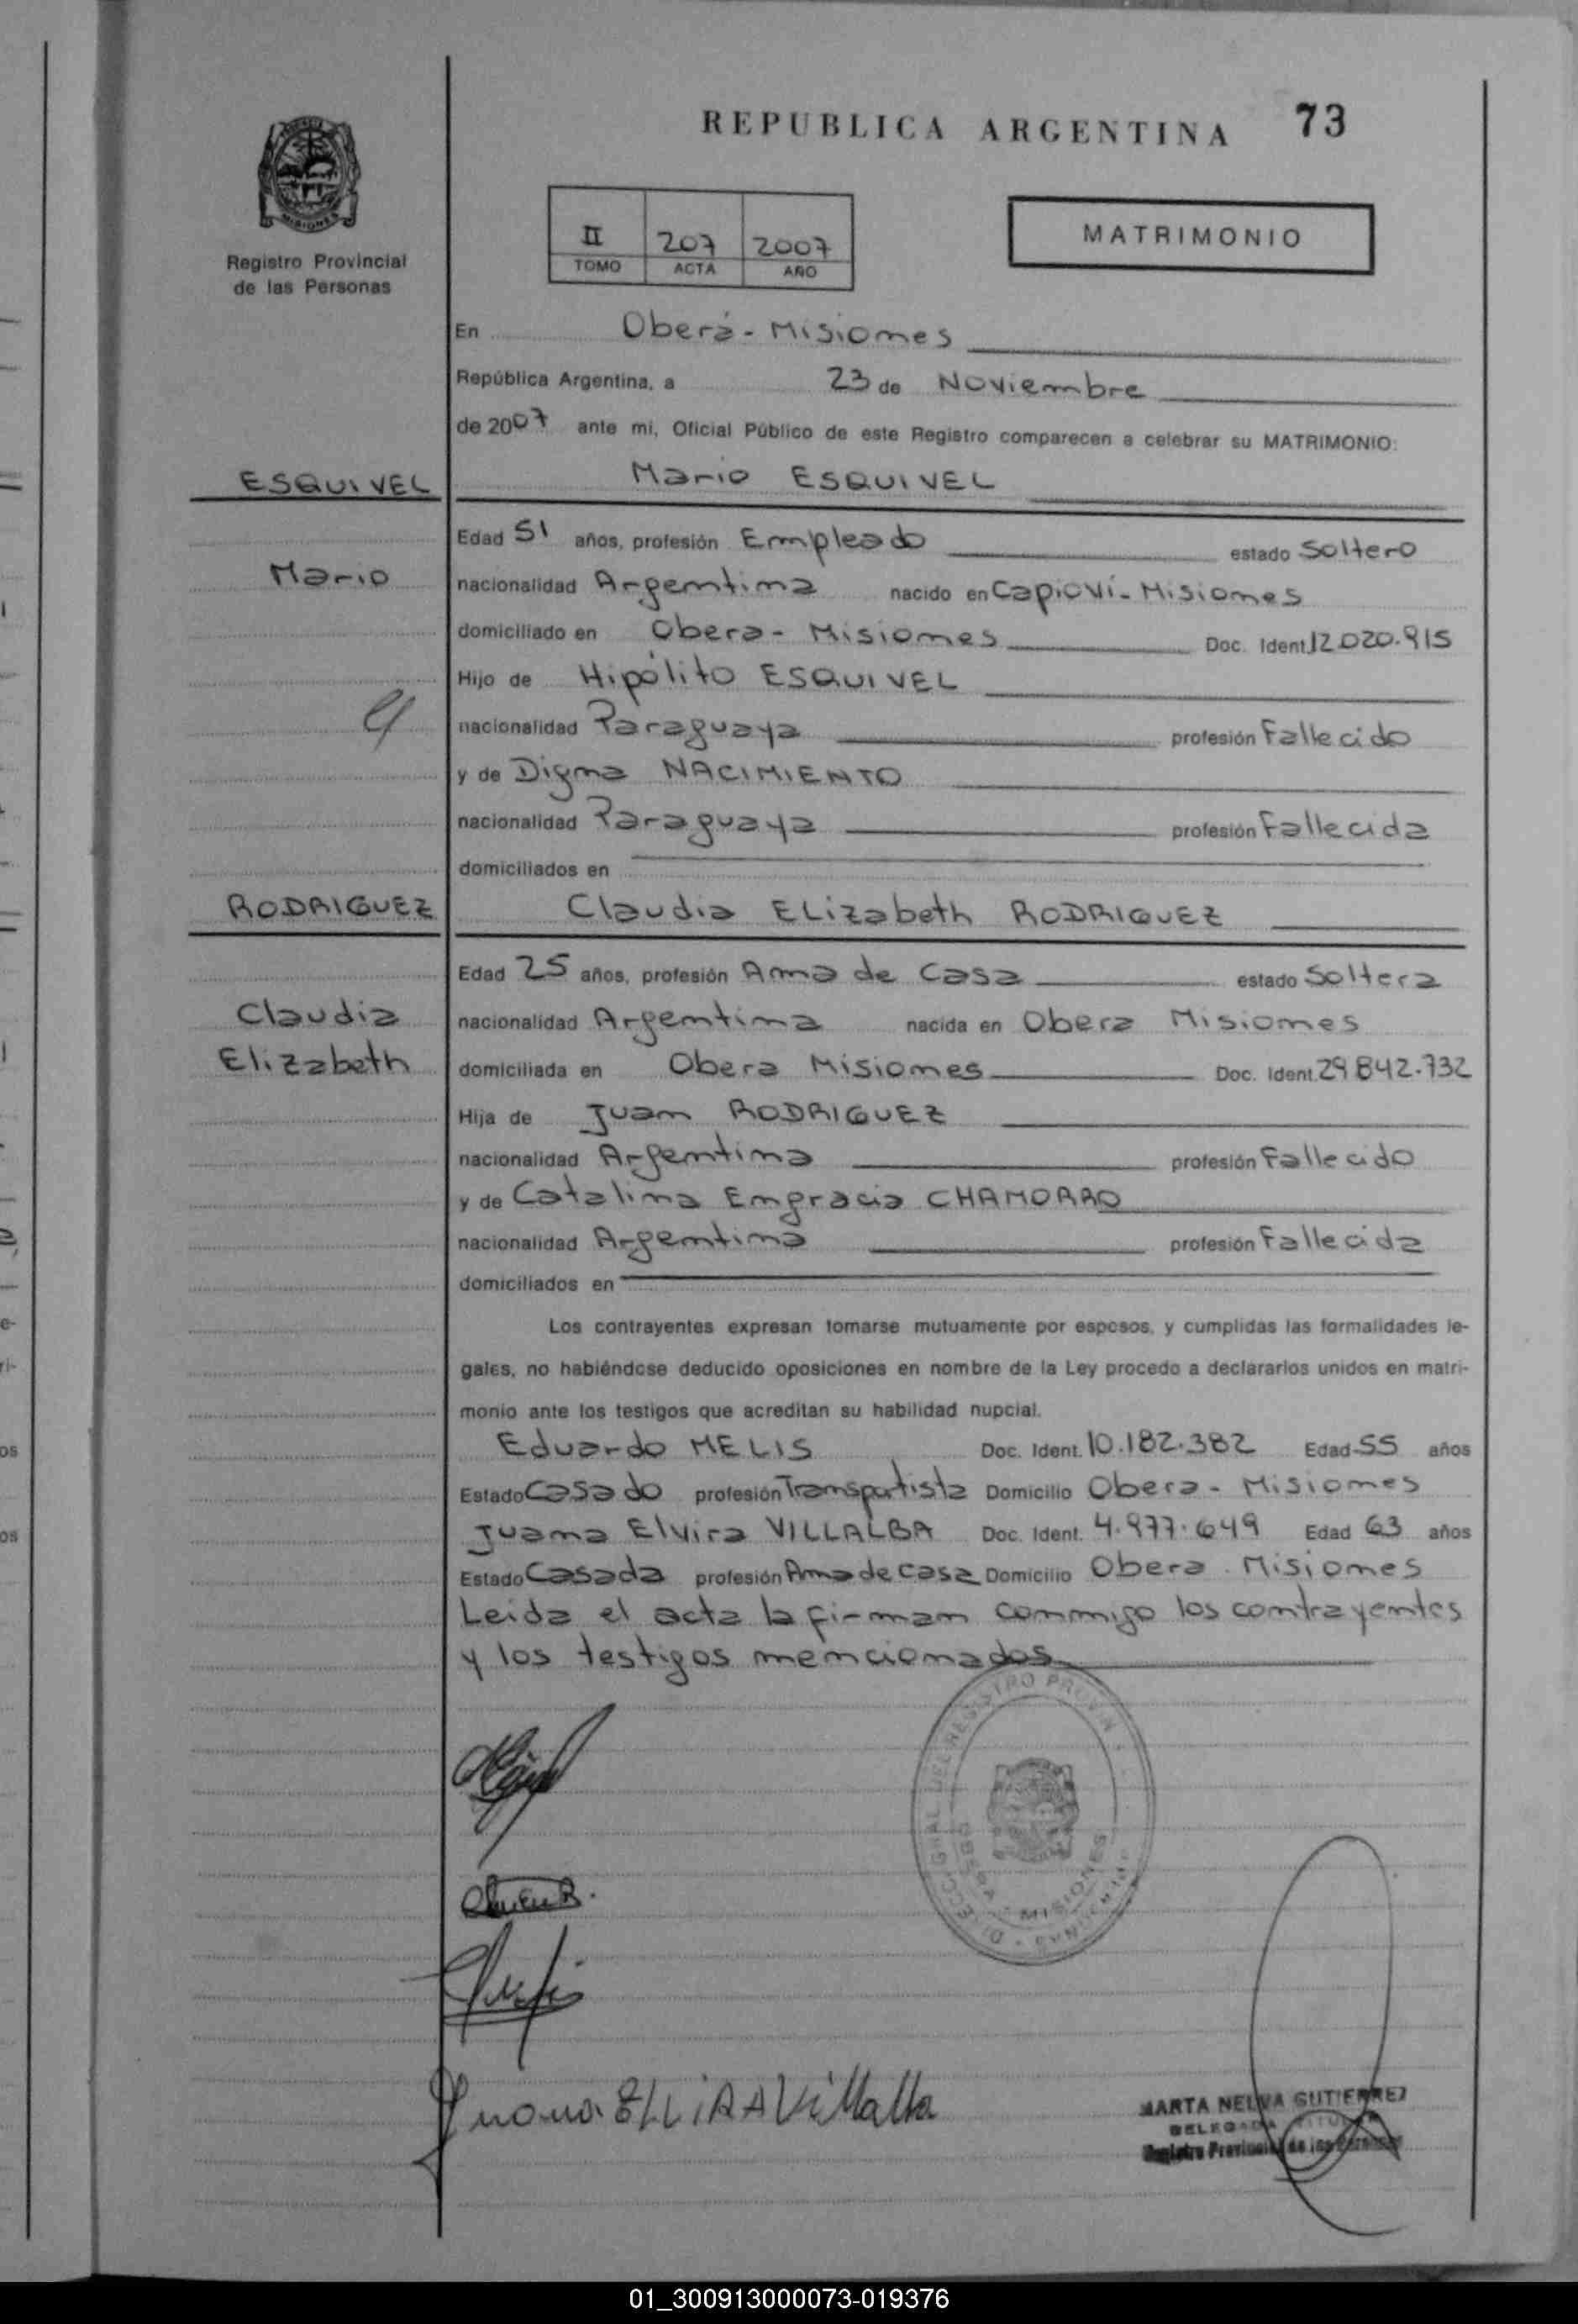 REPUBLICA ARGENTINA 73
MISIONES
Registro Provincial
de las Personas
II 207 2007
TOMO ACTA AÑO
MATRIMONIO
En Oberá - Misiones
República Argentina, a 23 de Noviembre
de 2007 ante mi, Oficial Público de este Registro comparecen a celebrar su MATRIMONIO:
ESQUIVEL Mario ESQUIVEL
Edad 51 años, profesión Empleado estado Soltero
Mario nacionalidad Argentina nacido en Capioví - Misiones
domiciliado en Obera - Misiones Doc. Ident. 12.020.915
Hijo de Hipólito ESQUIVEL
nacionalidad Paraguaya profesión Fallecido
y de Digna NACIMIENTO
nacionalidad Paraguaya profesión Fallecida
domiciliados en
RODRIGUEZ Claudia ELizabeth RODRIGUEZ
Edad 25 años, profesión Ama de Casa estado Soltera
Claudia nacionalidad Argentina nacida en Obera Misiones
Elizabeth domiciliada en Obera Misiones Doc. Ident. 29.842.732
Hija de Juan RODRIGUEZ
nacionalidad Argentina profesión Fallecido
y de Catalina Engracia CHAMORRO
nacionalidad Argentina profesión Fallecida
domiciliados en
Los contrayentes expresan tomarse mutuamente por esposos, y cumplidas las formalidades le-
gales, no habiéndose deducido oposiciones en nombre de la Ley procedo a declararlos unidos en matri-
monio ante los testigos que acreditan su habilidad nupcial.
Eduardo MELIS Doc. Ident. 10.182.382 Edad 55 años
Estado Casado profesión Transportista Domicilio Obera - Misiones
Juana Elvira VILLALBA Doc. Ident. 4.977.649 Edad 63 años
Estado Casada profesión Ama de Casa Domicilio Obera Misiones
Leida el acta la firman conmigo los contrayentes
y los testigos mencionados
OBERA MISIONES
Juana ELVIRA Villalba
MARTA NELVA GUTIERREZ
DELEGADA TITULAR
Registro Provincial de las Personas
01_300913000073-019376